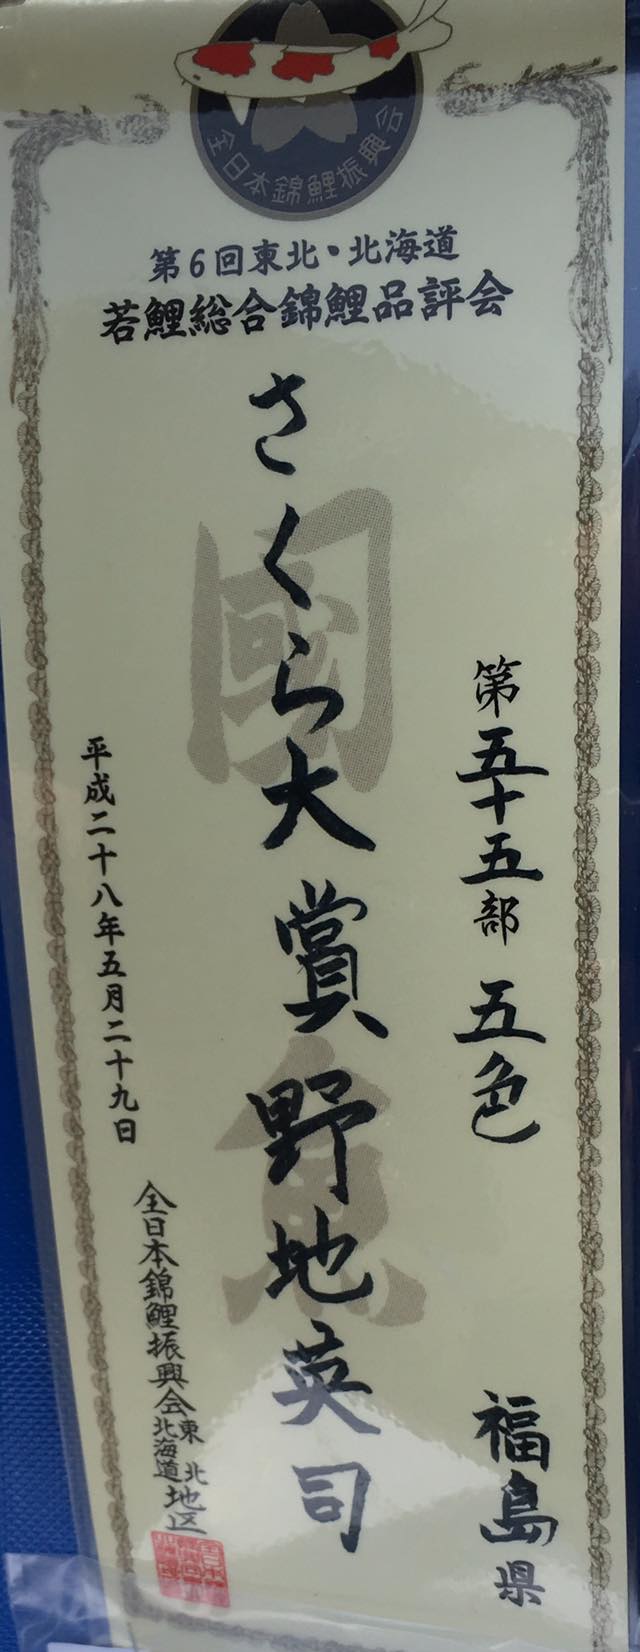 全日本錦鯉振興会
第6回東北・北海道
若鯉総合錦鯉品評会
第五十五部 五色
福島県
さくら大賞 野地英司
國魚
平成二十八年五月二十九日
全日本錦鯉振興会 東北 北海道 地区